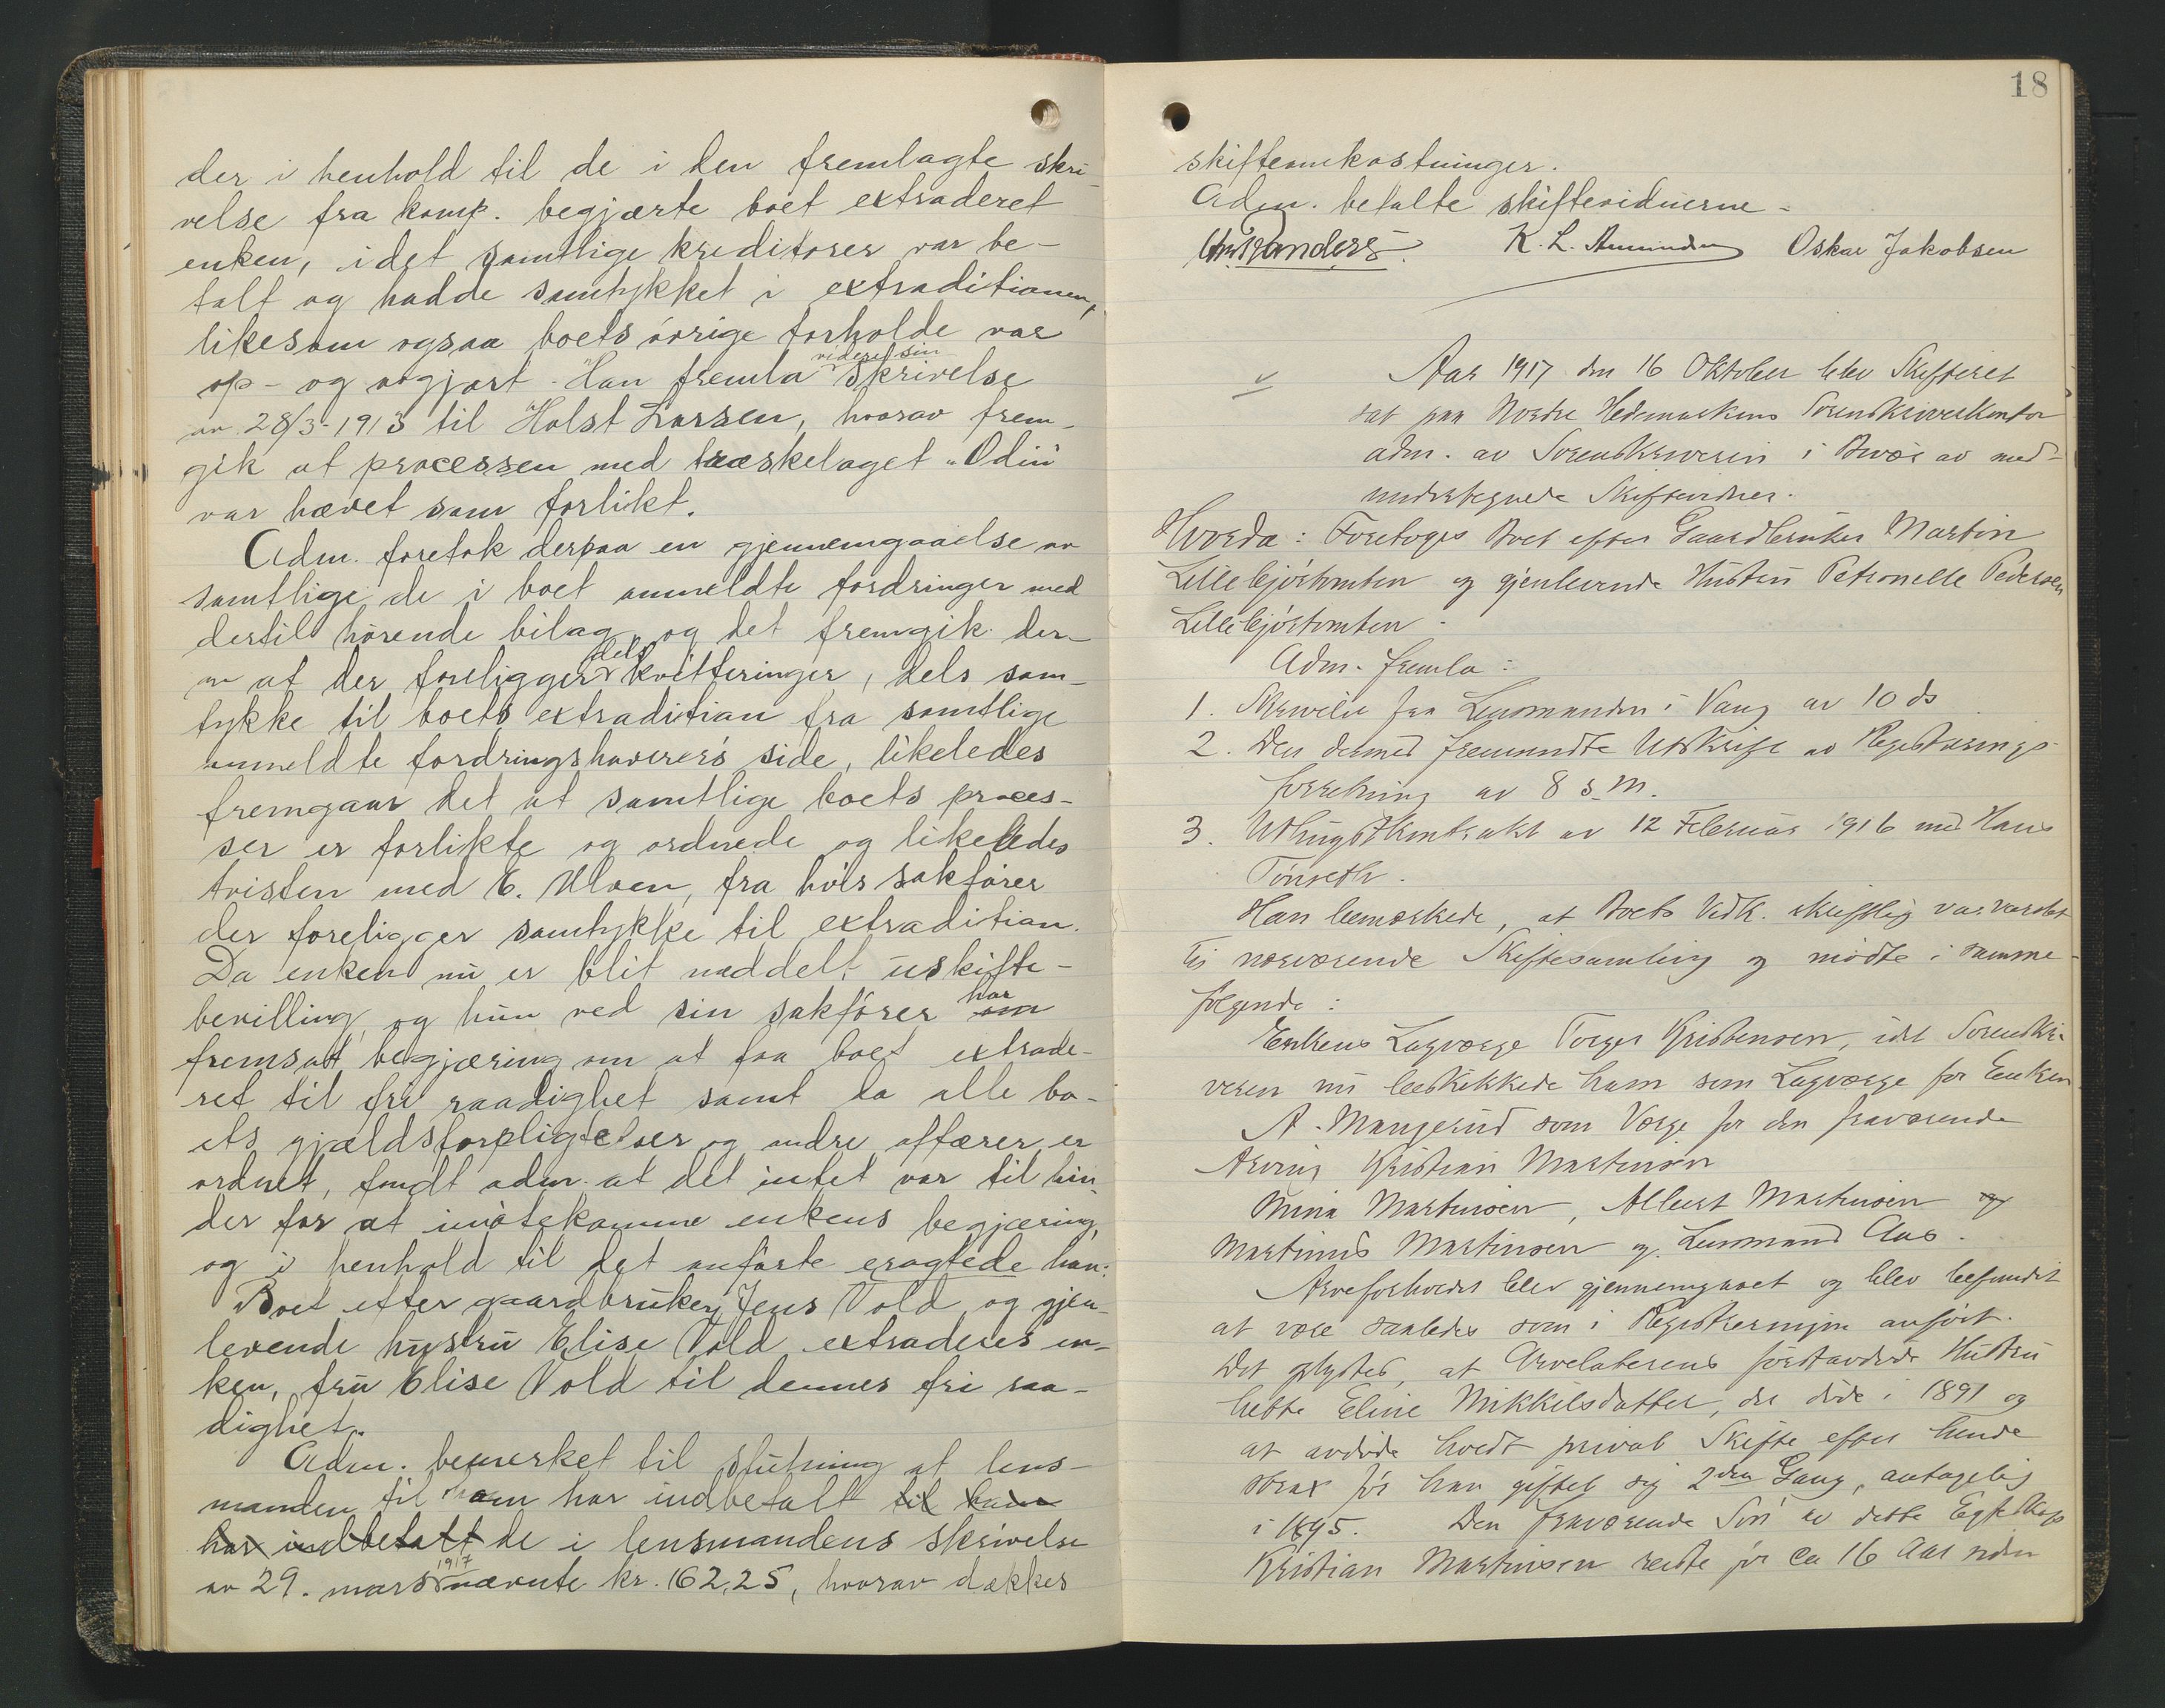 der i henhold til de i den fremlagte skri-
velse fra komp. begjærte boet extraderet
enken, idet samtlige kreditorer var be-
talt og hadde samtykket i extraditionen,
likesom ogsaa boets øvrige forholde var
op- og avgjort. Han fremla videre sin skrivelse
av 28/3-1913 til Holst Larsen, hvorav frem-
gik at processen med træskelaget "Odin"
var hævet som forlikt.
Adm. foretok derpaa en gjennemgaaelse av
samtlige de i boet anmeldte fordringer med
dertil hørende bilag, og det fremgik der-
av at der foreligger dels kvitteringer, dels sam-
tykke til boets extradition fra samtlige
anmeldte fordringshaverers side, likeledes
fremgaar det at samtlige boets proces-
ser er forlikte og ordnede og likeledes
tvisten med E. Ulven, fra hvis sakfører
der foreligger samtykke til extradition.
Da enken nu er blit meddelt uskifte-
bevilling, og hun ved sin sakfører om har
fremsatt begjæring om at faa boet extrade-
ret til fri raadighet samt da alle bo-
ets gjældsforpligtelser og andre affærer er
ordnet, fandt adm. at det intet var til hin-
der for at imøtekomme enkens begjæring,
og i henhold til det anførte eragtede han:
Boet efter gaardbruker Jens Vold og gjen-
levende hustru Elise Vold extraderes en-
ken, fru Elise Vold til dennes fri raa-
dighet.
Adm. bemerket til slutning at lens-
manden til ham har indbetalt til ham
har indbetalt de i lensmandens skrivelse
av 29. mars 1917 nævnte kr. 162,25, hvorav dækkes
18
skifteomkostninger.
Adm. betalte skiftevidnerne.
K. L. Amundsen Oskar Jakobsen
Aar 1917 den 16 Oktober blev Skifteret
sat paa Nordre Hedemarkens Sorenskriverkontor
adm. av Sorenskriveren i Overvær av med-
undertegnede Skiftevidner.
Hvorda: Foretoges Boet efter Gaardbruker Martin
Lillebjørstomten og gjenlevende Hustru Petronelle Pedersen
Lillebjørstomten.
Adm. fremla:
1. Skrivelse fra Lensmanden i Vang av 10 ds
2. Den dermed fremsendte Utskrift av Registrerings-
forretning av 8 s. M.
3. Utlugstkontrakt av 12 Februar 1916 med Hans
Tønseth.
Han bemerkede, at Boets Vedk. skriftlig var varslet
til nærværende Skiftesamling og mødte i samme
følgende:
Enkens Lagværge Torger Kristensen, idet Sorenskri-
veren nu beskikkede ham som Lagværge for Enken
A. Mangerud som Værge for den fraværende
Arving Kristian Martinsen
Mina Martinsen, Albert Martinsen og
Martinus Martinsen og Lensmand Aas.
Arveforholdet blev gjennemgaaet og blev befundet
at være saaledes som i Registreringen anført.
Det oplystes, at Arvelaterens førstavdøde Hustru
hette Eline Mikkelsdatter, der døde i 1891 og
at avdøde holdt privat Skifte efter hende
strax før han giftet sig 2den Gang, antagelig
i 1895. Den fraværende Søn av dette Egteskap
Kristian Martinsen reiste for ca 16 Aar siden